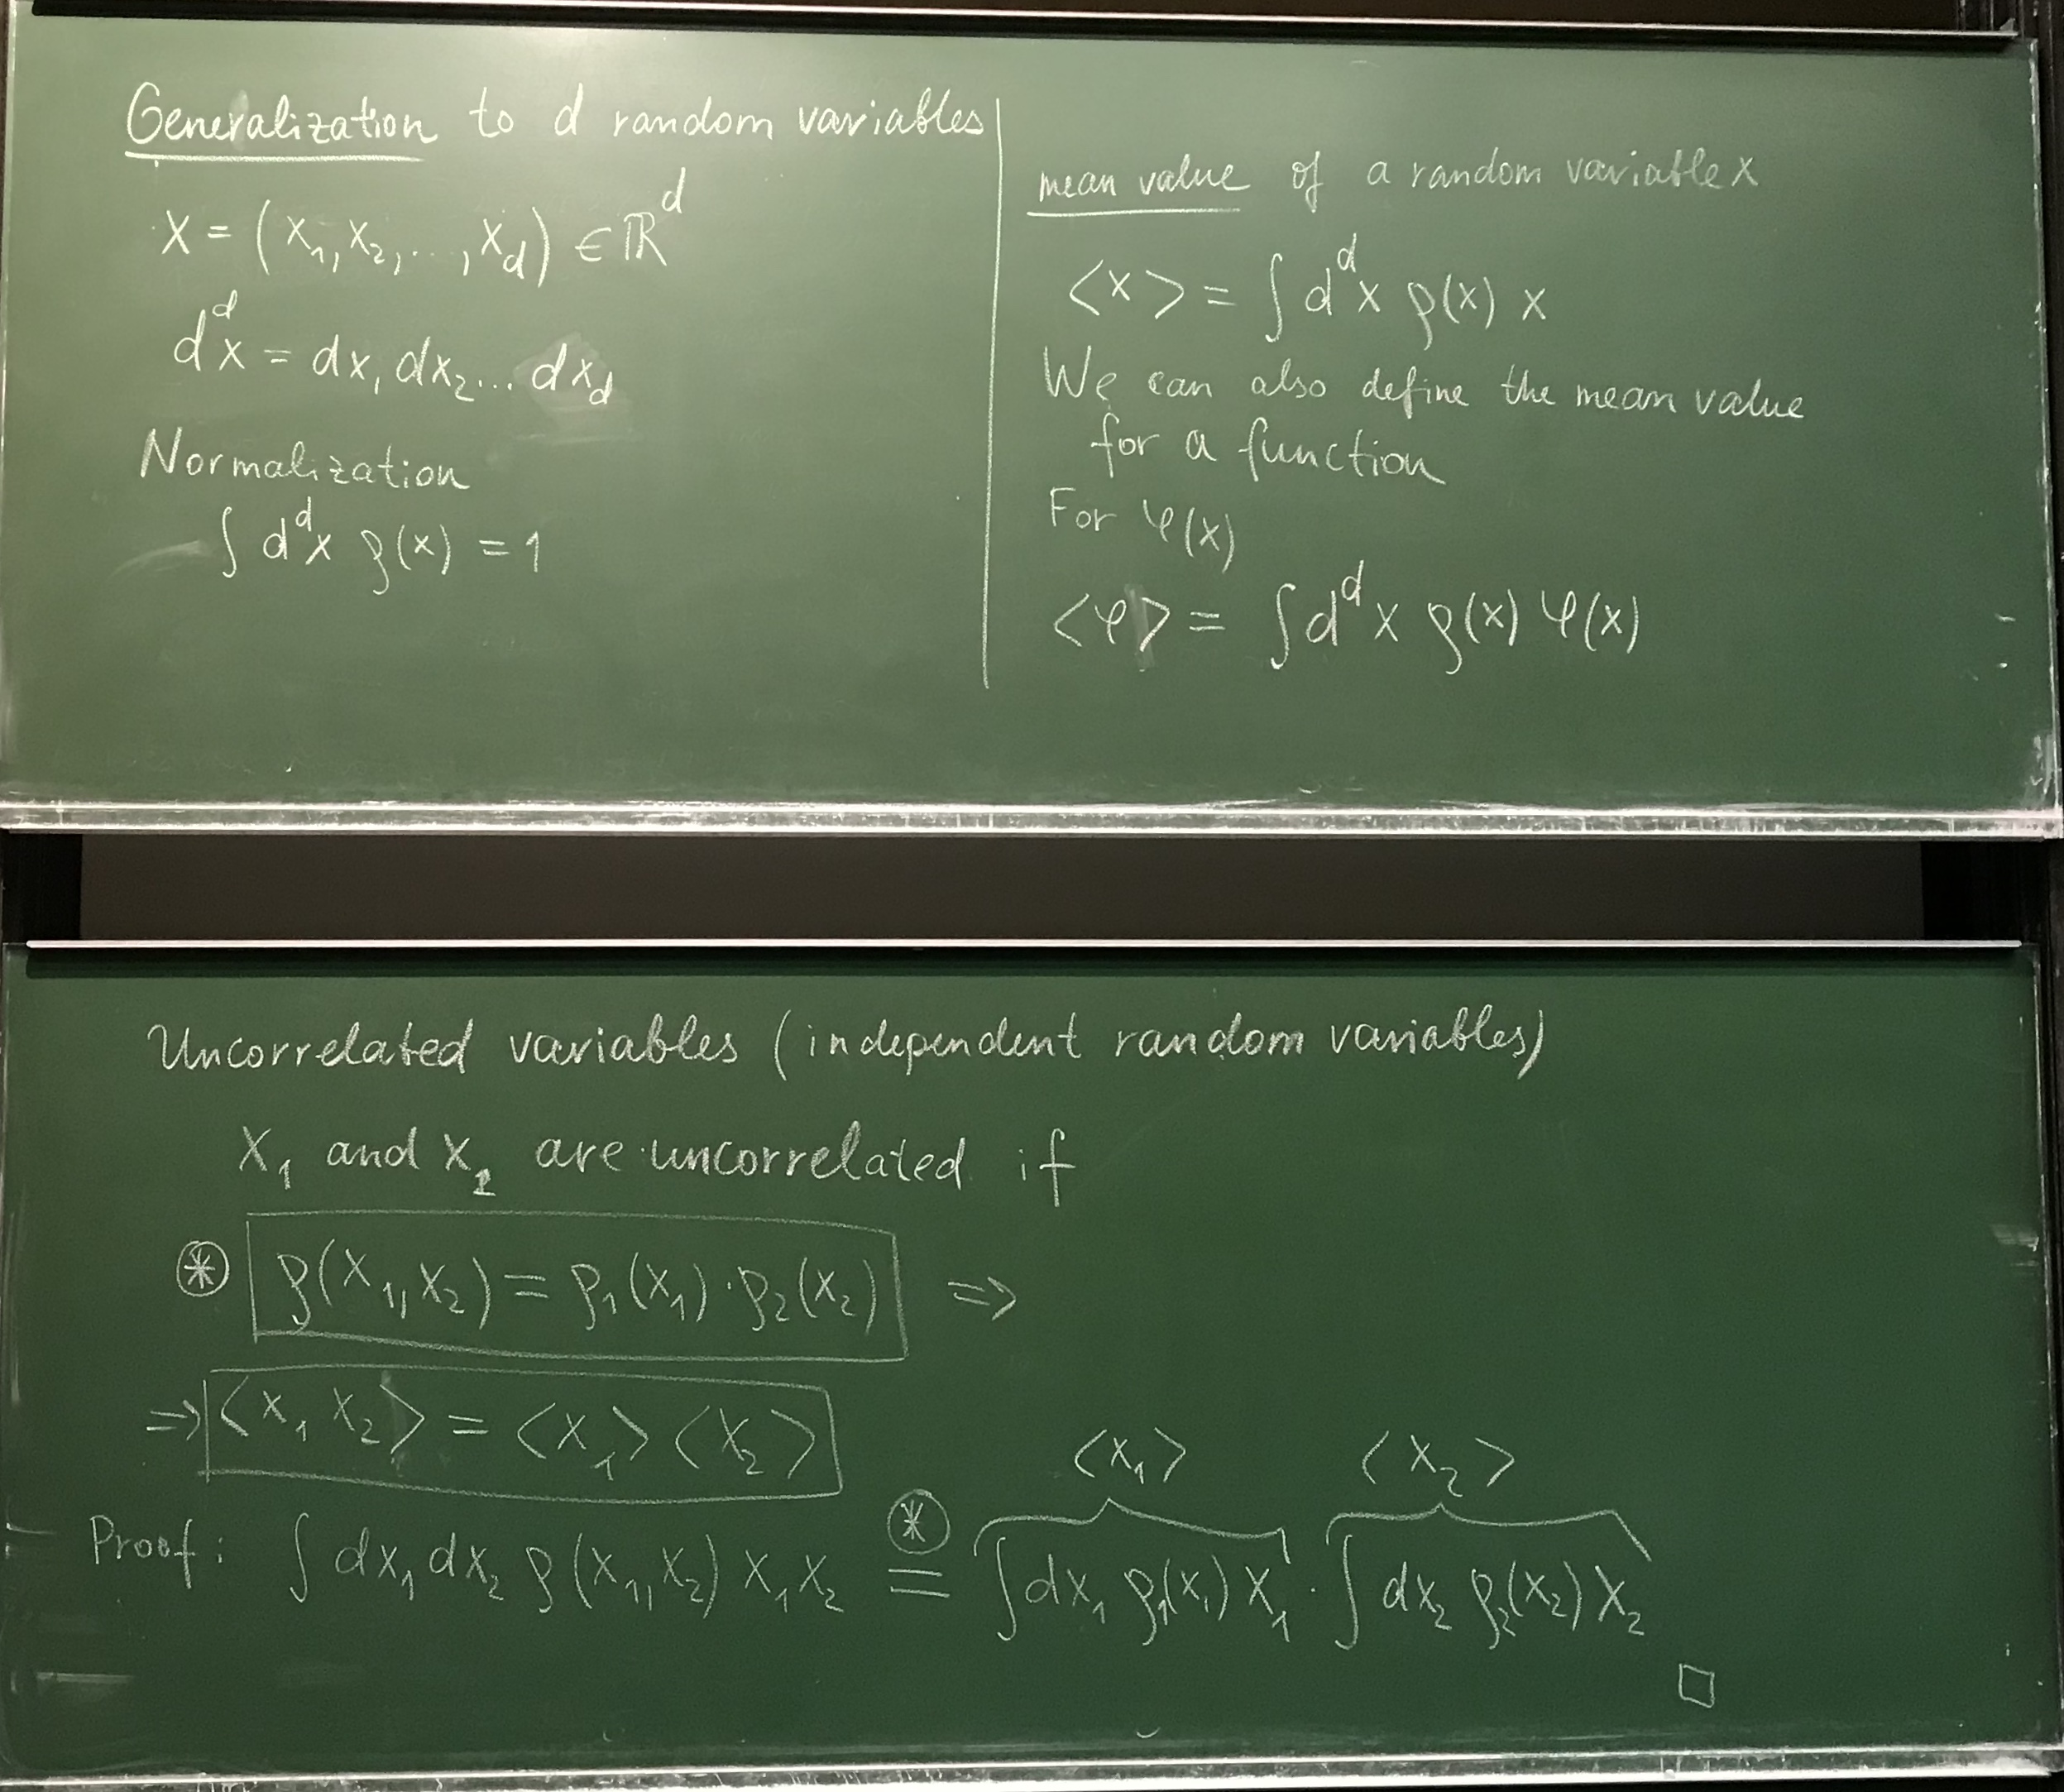 Generalization to d random variables
X = (x₁, x₂, ..., x_d) ∈ ℝ^d
d^d x = dx₁ dx₂ ... dx_d
Normalization
∫ d^d x ρ(x) = 1
mean value of a random variable x
<x> = ∫ d^d x ρ(x) x
We can also define the mean value
for a function
For φ(x)
<φ> = ∫ d^d x ρ(x) φ(x)
Uncorrelated variables (independent random variables)
X₁ and X₂ are uncorrelated if
⊛ ρ(x₁, x₂) = ρ₁(x₁) · ρ₂(x₂) ⇒
⇒ <x₁ x₂> = <x₁> <x₂>
<x₁> <x₂>
Proof: ∫ dx₁ dx₂ ρ(x₁, x₂) x₁ x₂ ⊛ = ∫ dx₁ ρ₁(x₁) x₁ · ∫ dx₂ ρ₂(x₂) x₂
□